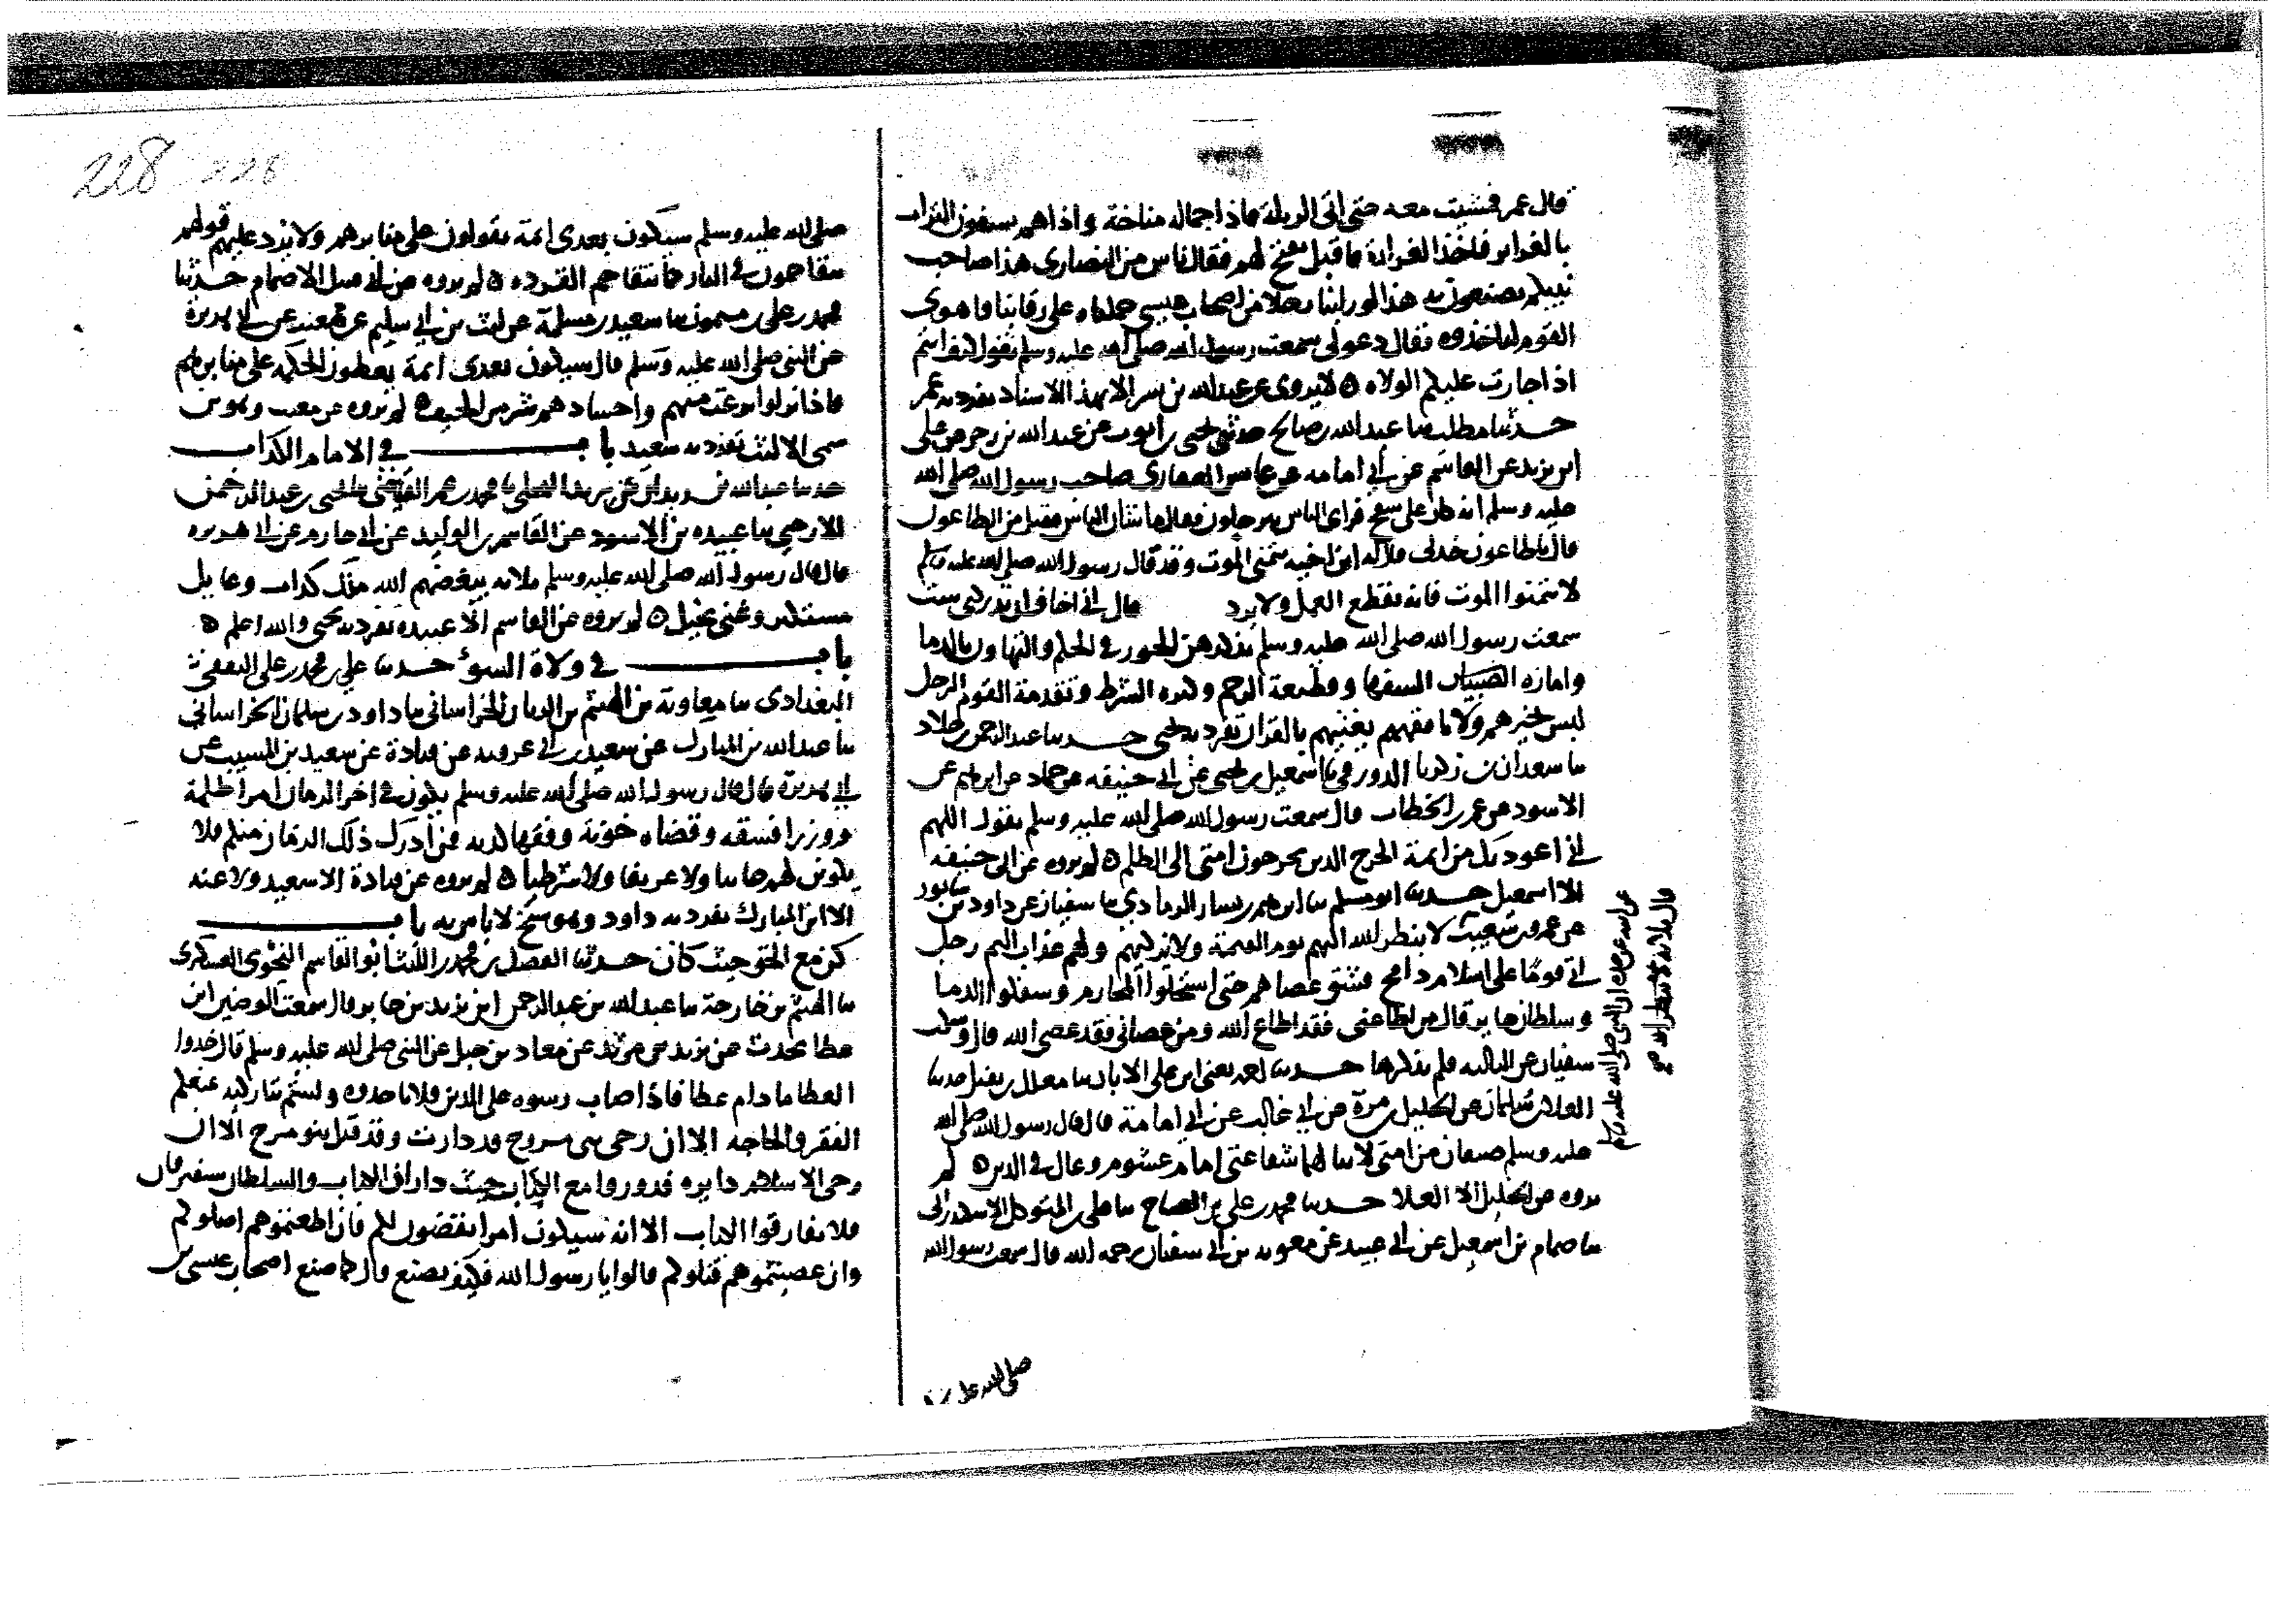 قال عمر فمشيت معه حتى اتى الربذة فاذا جماله مناخة واذا هم يسقون التراب
بالغراير فاخذ الغرارة فاقبل ينفخ لهم فقال ناس من النصارى هذا صاحب
نبيكم يصنعون به هذا لو راينا رجلا من اصحاب عيسى حملناه على رقابنا فاهوى
القوم لياخذوه فقال دعونى سمعت رسول الله صلى الله عليه وسلم يقول كيف انتم
اذا جارت عليكم الولاه لا يروى عن عبد الله بن بسر الا بهذا الاسناد تفرد به عمر
حدثنا مطلب ثنا عبد الله بن صالح حدثنى يحيى بن ايوب عن عبد الله بن زحر عن على
ابن يزيد عن القاسم عن ابي امامه عن عابس الغفارى صاحب رسول الله صلى الله
عليه وسلم انه كان على سطح فراى الناس يترحلون فقال ما شان الناس فقيل من الطاعون
قال يا طاعون خذنى فقال له ابن اخيه تتمنى الموت وقد قال رسول الله صلى الله عليه وسلم
لا تتمنوا الموت فانه يقطع العمل ولا يرد قال انى اخاف ان تدركنى ست
سمعت رسول الله صلى الله عليه وسلم يذكرهن الجور فى الحكم والتهاون بالدما
وامارة الصبيان السفها وقطيعة الرحم وكثره الشرط وتقدمة القوم الرجل
ليس بخيرهم ولا بافقههم يغنيهم بالقران تفرد به يحيى حدثنا عبد الرحمن بن خلاد
ثنا سعدان بن زكريا الدورقى ثنا اسمعيل بن يحيى عن ابي حنيفه عن حماد عن ابرهيم عن
الاسود عن عمر بن الخطاب قال سمعت رسول الله صلى الله عليه وسلم يقول اللهم
انى اعوذ بك من ايمة الحرج الذين يخرجون امتى الى الظلم لم يروه عن ابي حنيفه
الا اسمعيل حدثنا ابو مسلم ثنا ابرهيم بن بشار الرمادي ثنا سفيان عن داود بن شابور
عن عمرو بن شعيب لا ينظر الله اليهم يوم القيمة ولا يزكيهم ولهم عذاب اليم رجل
اتى قوما على اسلام دامج فشق عصاهم حتى استحلوا المحارم وسفكوا الدما
وسلطان جاير قال من اطاعنى فقد اطاع الله ومن عصانى فقد عصى الله قال وسكت
سفيان عن الثالثه فلم يذكرها حدثنا احمد يعنى ابن على الابار ثنا معلل بن نفيل ثنا
العلا بن سليمان عن الخليل بن مرة عن ابي غالب عن ابي امامة قال قال رسول الله صلى الله
عليه وسلم صنفان من امتى لا تنالهما شفاعتى امام غشوم وغال فى الدين لم
يروه عن الخليل الا العلا حدثنا محمد بن على بن الصباح ثنا على المتوكل الاسكندرانى
ثنا ضمام بن اسمعيل عن ابي عبيد عن معويه بن ابي سفيان رحمه الله قال سمعت رسول الله
عن ابيه عن جده ان النبى صلى الله عليه وسلم
قال ثلاثه لا ينظر الله صح
صلى الله عليه
228 228
صلى الله عليه وسلم سيكون بعدى ايمة يقولون على منابرهم ولا يرد عليهم قولهم
يتقاحمون فى النار كما يتقاحم القرده لم يروه عن ابى قبيل الا ضمام حدثنا
محمد بن على بن ميمون ثنا سعيد بن مسلمة عن ليث بن ابي سليم عن معتب عن ابي بريدة
عن النبى صلى الله عليه وسلم قال سيكون بعدى ايمة يعطون الحكمة على منابرهم
فاذا نزلوا نزعت منهم واجسادهم شر من الجيف لم يروه عن معتب ويونس
سمى الا ليث تفرد به سعيد باب فى الامام الكذاب
للارحبى ثنا عبيده بن الاسود عن القاسم بن الوليد عن ابى حازم عن ابى هريره
قال قال رسول الله صلى الله عليه وسلم ثلاثه يبغضهم الله ملك كذاب وعايل
مستكبر وغنى بخيل لم يروه عن القاسم الا عبيده تفرد به يحيى والله اعلم
باب فى ولاة السوء حدثنا على بن محمد بن على الثقفى
البغدادى ثنا معاوية بن الهيثم بن الريان الخراسانى ثنا داود بن سليمان الخراسانى
ثنا عبد الله بن المبارك عن سعيد بن ابي عروبه عن قتادة عن سعيد بن المسيب عن
ابي هريرة قال قال رسول الله صلى الله عليه وسلم يكون فى اخر الزمان امرا ظلمة
ووزرا فسقه وقضاه خونة وفقها كذبه فمن ادرك ذلك الزمان منكم فلا
يكونن لهم جابيا ولا عريفا ولا شرطيا لم يروه عن قتادة الا سعيد ولا عنه
الا ابن المبارك تفرد به داود وهو شيخ لا باس به باب
كن مع الحق حيث كان حدثنا الفضل بن محمد بن الليث ابو القاسم النحوى العسكرى
ثنا الهيثم بن خارجة ثنا عبد الله بن عبد الرحمن ابن يزيد بن جابر قال سمعت الوضين ابن
عطا يحدث عن يزيد بن مرثد عن معاذ بن جبل عن النبى صلى الله عليه وسلم قال خذوا
العطا ما دام عطا فاذا صاب رشوه على الدين فلا تاخذوه ولستم بتاركيه يمنعكم
الفقر والحاجه الا ان رحى بنى مرج قد دارت وقد قتل بنو مرح الا ان
رحى الاسلام دايره فدوروا مع الكتاب حيث دار الا ان الكتاب والسلطان سيفترقان
فلا تفارقوا الكتاب الا انه سيكون امرا يقضون لكم فان اطعتموهم اضلوكم
وان عصيتموهم قتلوكم قالوا يا رسول الله فكيف نصنع قال كما صنع اصحاب عيسى بن